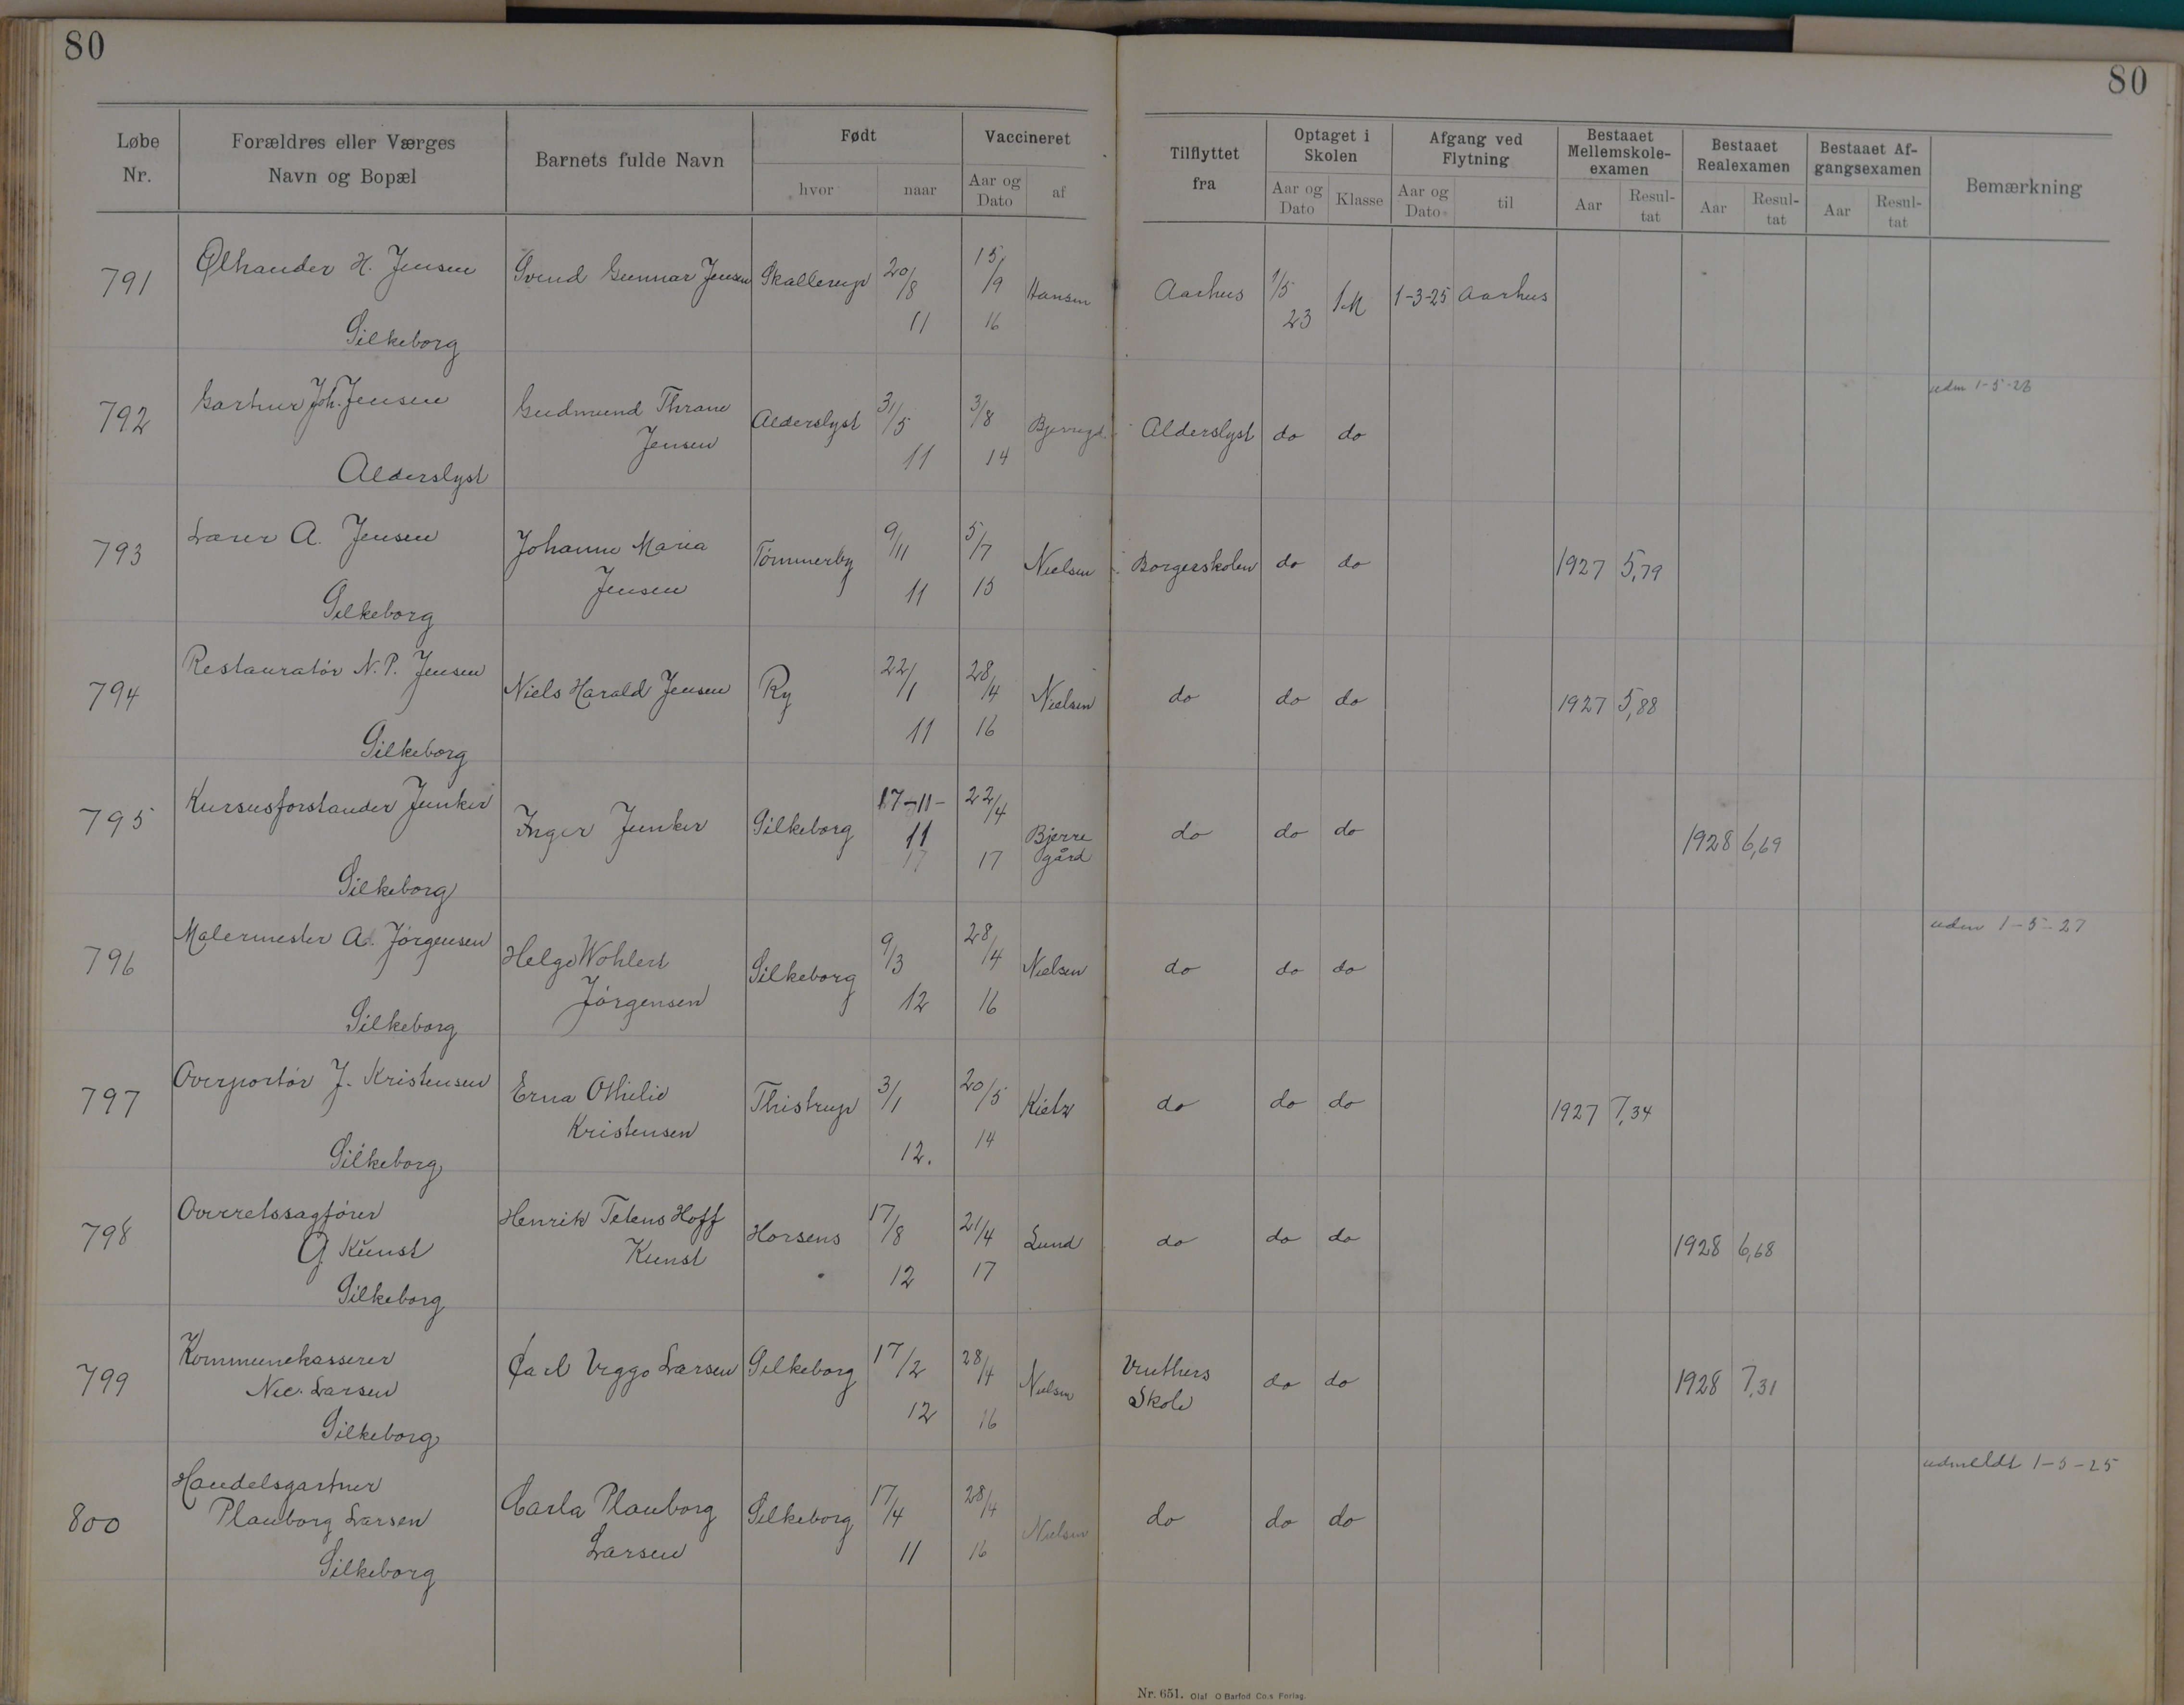 80
80
Løbe Nr. | Forældres eller Værges Navn og Bopæl | Barnets fulde Navn | Født hvor | naar | Vaccineret Aar og Dato | af | Tilflyttet fra | Optaget i Skolen Aar og Dato | Klasse | Afgang ved Flytning Aar og Dato | til | Bestaaet Mellemskole-examen Aar | Resul-tat | Bestaaet Realexamen Aar | Resul-tat | Bestaaet Af-gangsexamen Aar | Resul-tat | Bemærkning
791 | Ølhandler H. Jensen Silkeborg | Svend Gunnar Jensen | Skallerup | 20/8 11 | 15/9 16 | Hansen | Aarhus | 1/5 23 | 1M | 1-3-25 | Aarhus
792 | Gartner Joh. Jensen Alderslyst | Gudmund Thrane Jensen | Alderslyst | 31/5 11 | 3/8 14 | Bjerregd. | Alderslyst | do | do | udm 1-5-23
793 | Lærer A. Jensen Silkeborg | Johanne Maria Jensen | Tømmerby | 9/11 11 | 5/7 15 | Nielsen | Borgerskolen | do | do | 1927 | 5,79
794 | Restauratør N. P. Jensen Silkeborg | Niels Harald Jensen | Ry | 22/1 11 | 28/4 16 | Nielsen | do | do | do | 1927 | 5,88
795 | Kursusforstander Junker Silkeborg | Inger Junker | Silkeborg | 17-11-11 17 | 22/4 17 | Bjerre gård | do | do | do | 1928 | 6,69
796 | Malermester A. Jørgensen Silkeborg | Helge Wohlert Jørgensen | Silkeborg | 9/3 12 | 28/4 16 | Nielsen | do | do | do | udm 1-5-27
797 | Overportør J. Kristensen Silkeborg | Erna Othilie Kristensen | Thistrup | 3/1 12. | 20/5 14 | Kietz | do | do | do | 1927 | 7,34
798 | Overretssagfører G. Kunst Silkeborg | Henrik Tetens Hoff Kunst | Horsens | 17/8 12 | 21/4 17 | Lund | do | do | do | 1928 | 6,68
799 | Kommunekasserer Nic. Larsen Silkeborg | Carl Viggo Larsen | Silkeborg | 17/2 12 | 28/4 16 | Nielsen | Skole | do | do | 1928 | 7,31
800 | Handelsgartner Plauborg Larsen Silkeborg | Carla Plauborg Larsen | Silkeborg | 17/4 11 | 28/4 16 | Nielsen | do | do | do | udmeldt 1-5-25
Nr. 651. Olaf O Barfod Co.s Forlag.